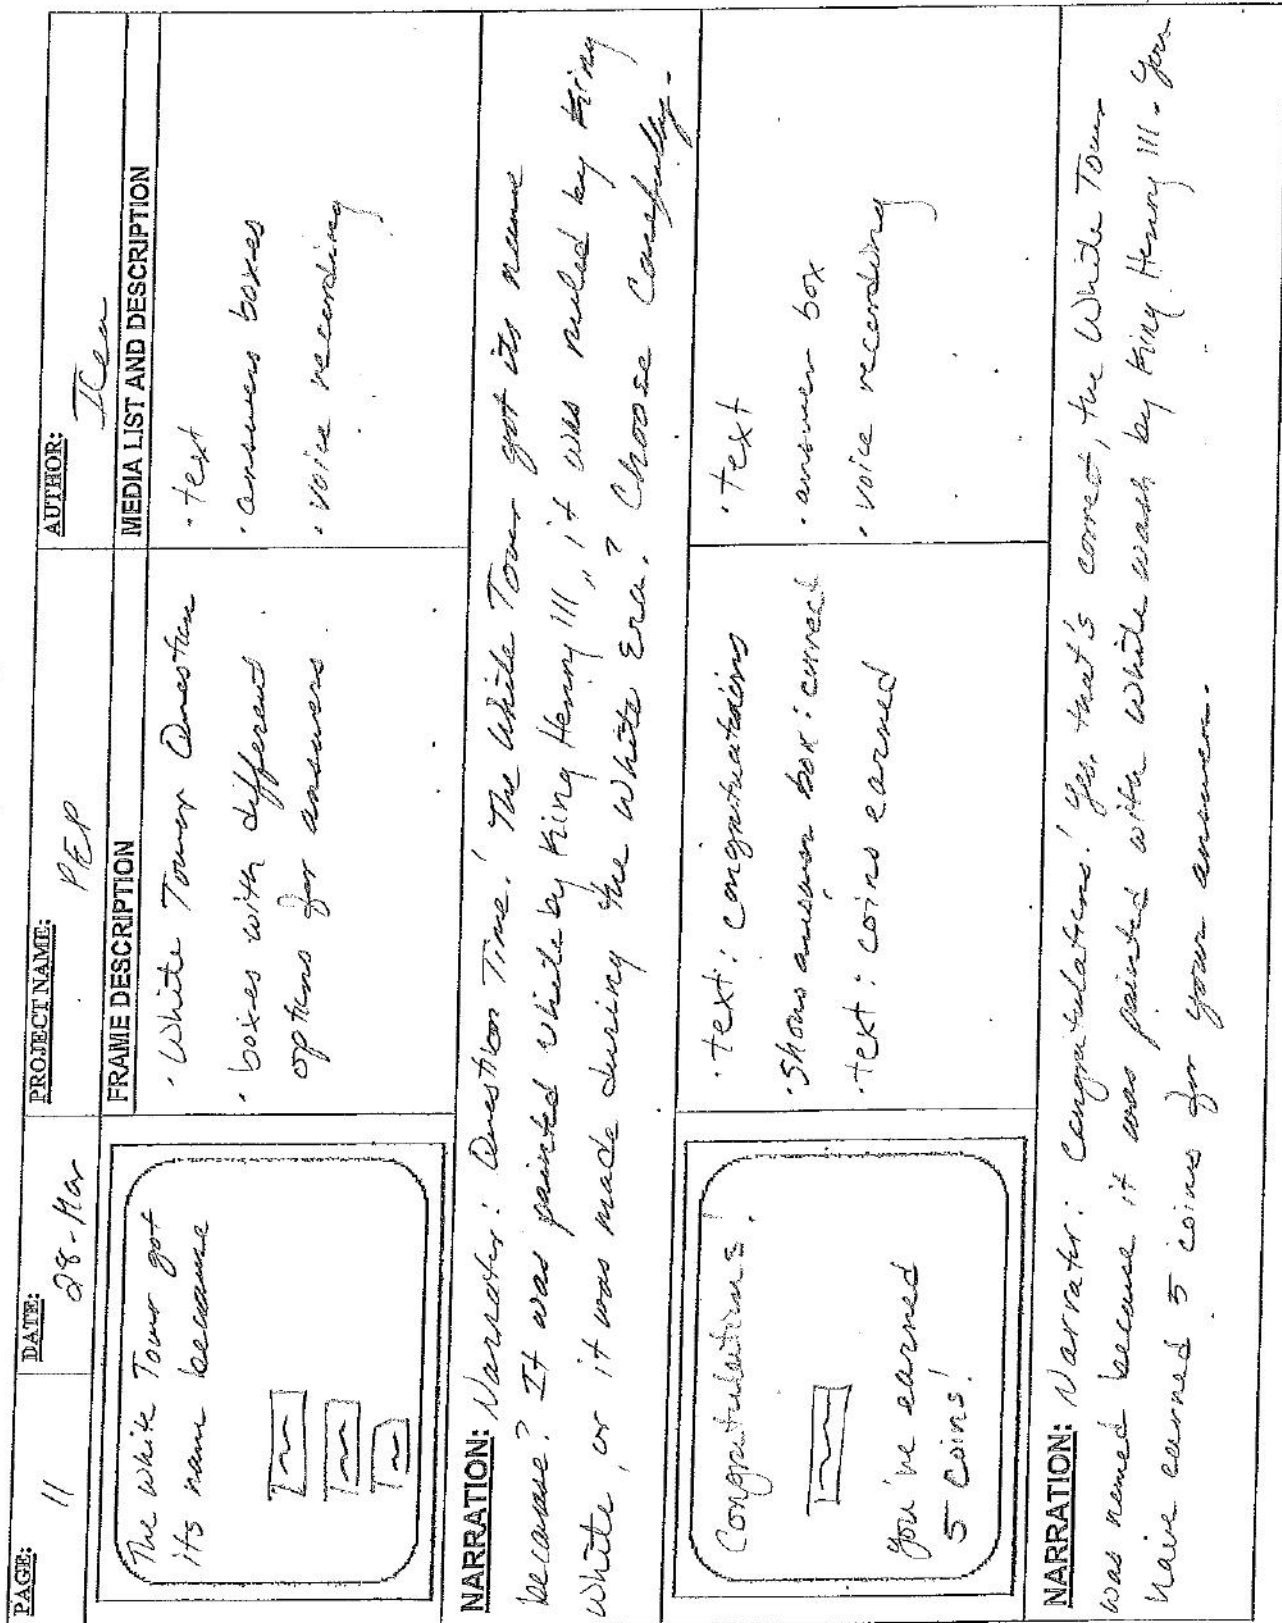 PAGE: 11
DATE: 28-Mar
PROJECT NAME: PEP
AUTHOR:
FRAME DESCRIPTION
MEDIA LIST AND DESCRIPTION
The White Tower got
its name because
· White Tower Question
· boxes with different
options for answers.
· text
· answers boxes
· voice recording
NARRATION: Narrator: Question Time! The White Tower got its name
because? It was painted white by King Henry III, it was ruled by King
White, or it was made during the White Era? Choose Carefully.
Congratulations!
you've earned
5 coins!
· text: congratulations
· Shows answer box: correct
· text: coins earned
· text
· answer box
· voice recording
NARRATION: Narrator: Congratulations! Yes, that's correct, the White Tower
was named because it was painted with white wash by King Henry III. You
have earned 5 coins for your answer.